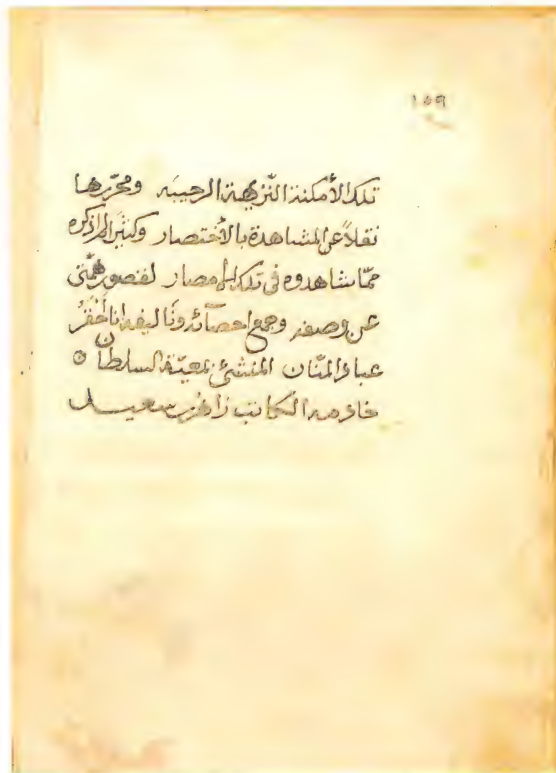 ١٥٩
تلك الأمكنة النّزيهة الرحيبة ومحرّرها
نقلاً عن المشاهدة بالأختصار وكثيرًا لم اذكره
ممّا شاهدوه فى تلك الامصار لقصور همّتى
عن وصفه وجمع احصآئه وتأليفه انا أحْقَرُ
عباد المنّان المنشئ بمعيّة السلطان
خادمه الكاتب زاهر بن سعيد